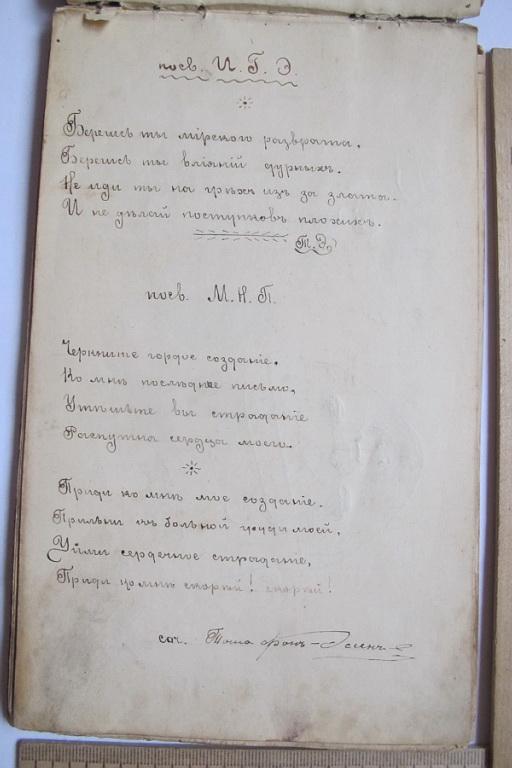 посв. И. Г. Э.
Берешсь ты мірского разврата.
Берешсь ты вліяній дурныхъ.
Не иди ты на грѣхъ изъ за злата.
И не дѣлай поступковъ плохихъ.
Т. Э.
посв. М. Н. П.
Черкните гордое созданіе.
Ко мнѣ послѣднее письмо,
Утѣшьте вы страданіе
сердца моего.
Приди ко мнѣ мое созданіе.
Прильни къ больной груди моей,
Уйми сердечное страданіе,
Приди ко мнѣ скорѣй! скорѣй!
соч. Тоша фонъ-